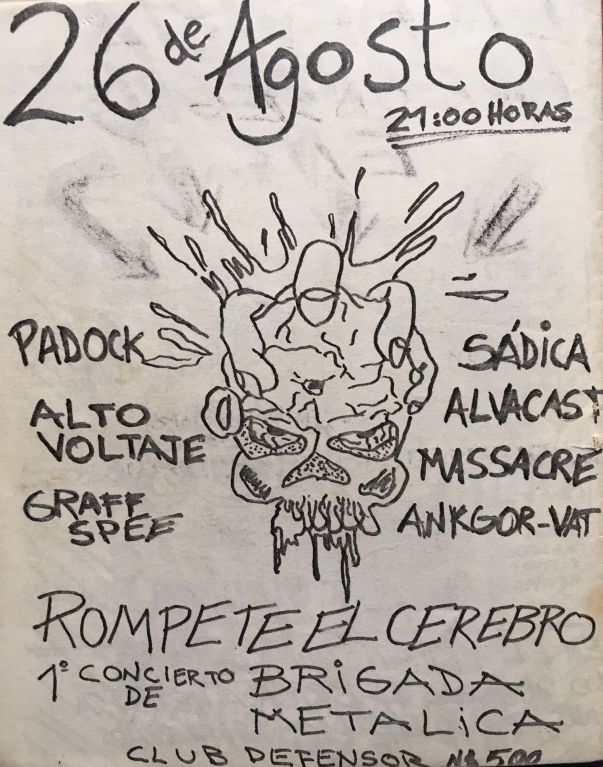 26 de Agosto
21:00 HORAS
PADOCK
ALTO
VOLTAJE
GRAFF
SPEE
SÁDICA
ALVACAST
MASSACRE
ANKGOR-VAT
ROMPETE EL CEREBRO
1º CONCIERTO DE BRIGADA
METALICA
CLUB DEFENSOR N$ 500